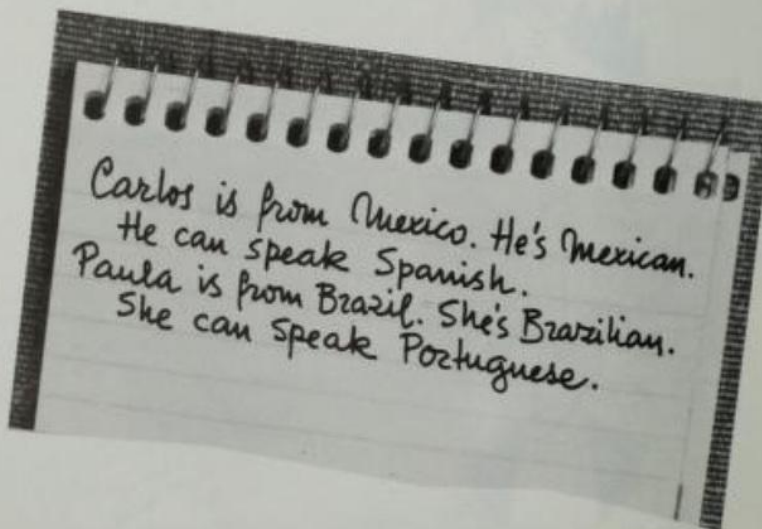 Carlos is from Mexico. He's Mexican.
He can speak Spanish.
Paula is from Brazil. She's Brazilian.
She can speak Portuguese.